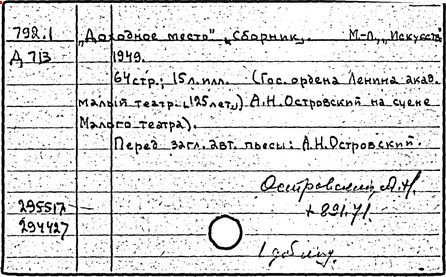 792.1 „Доходное место" „Сборник„. М-Л., „Искусств"
Д 713 1949.
64 стр.; 15 л. илл. (Гос. ордена Ленина акад.
малый театр. „125 лет„) А.Н. Островский на сцене
Малого театра).
Перед загл. авт. пьесы: А.Н. Островский.
Островский А.Н.
+ 891.71.
295517
294427